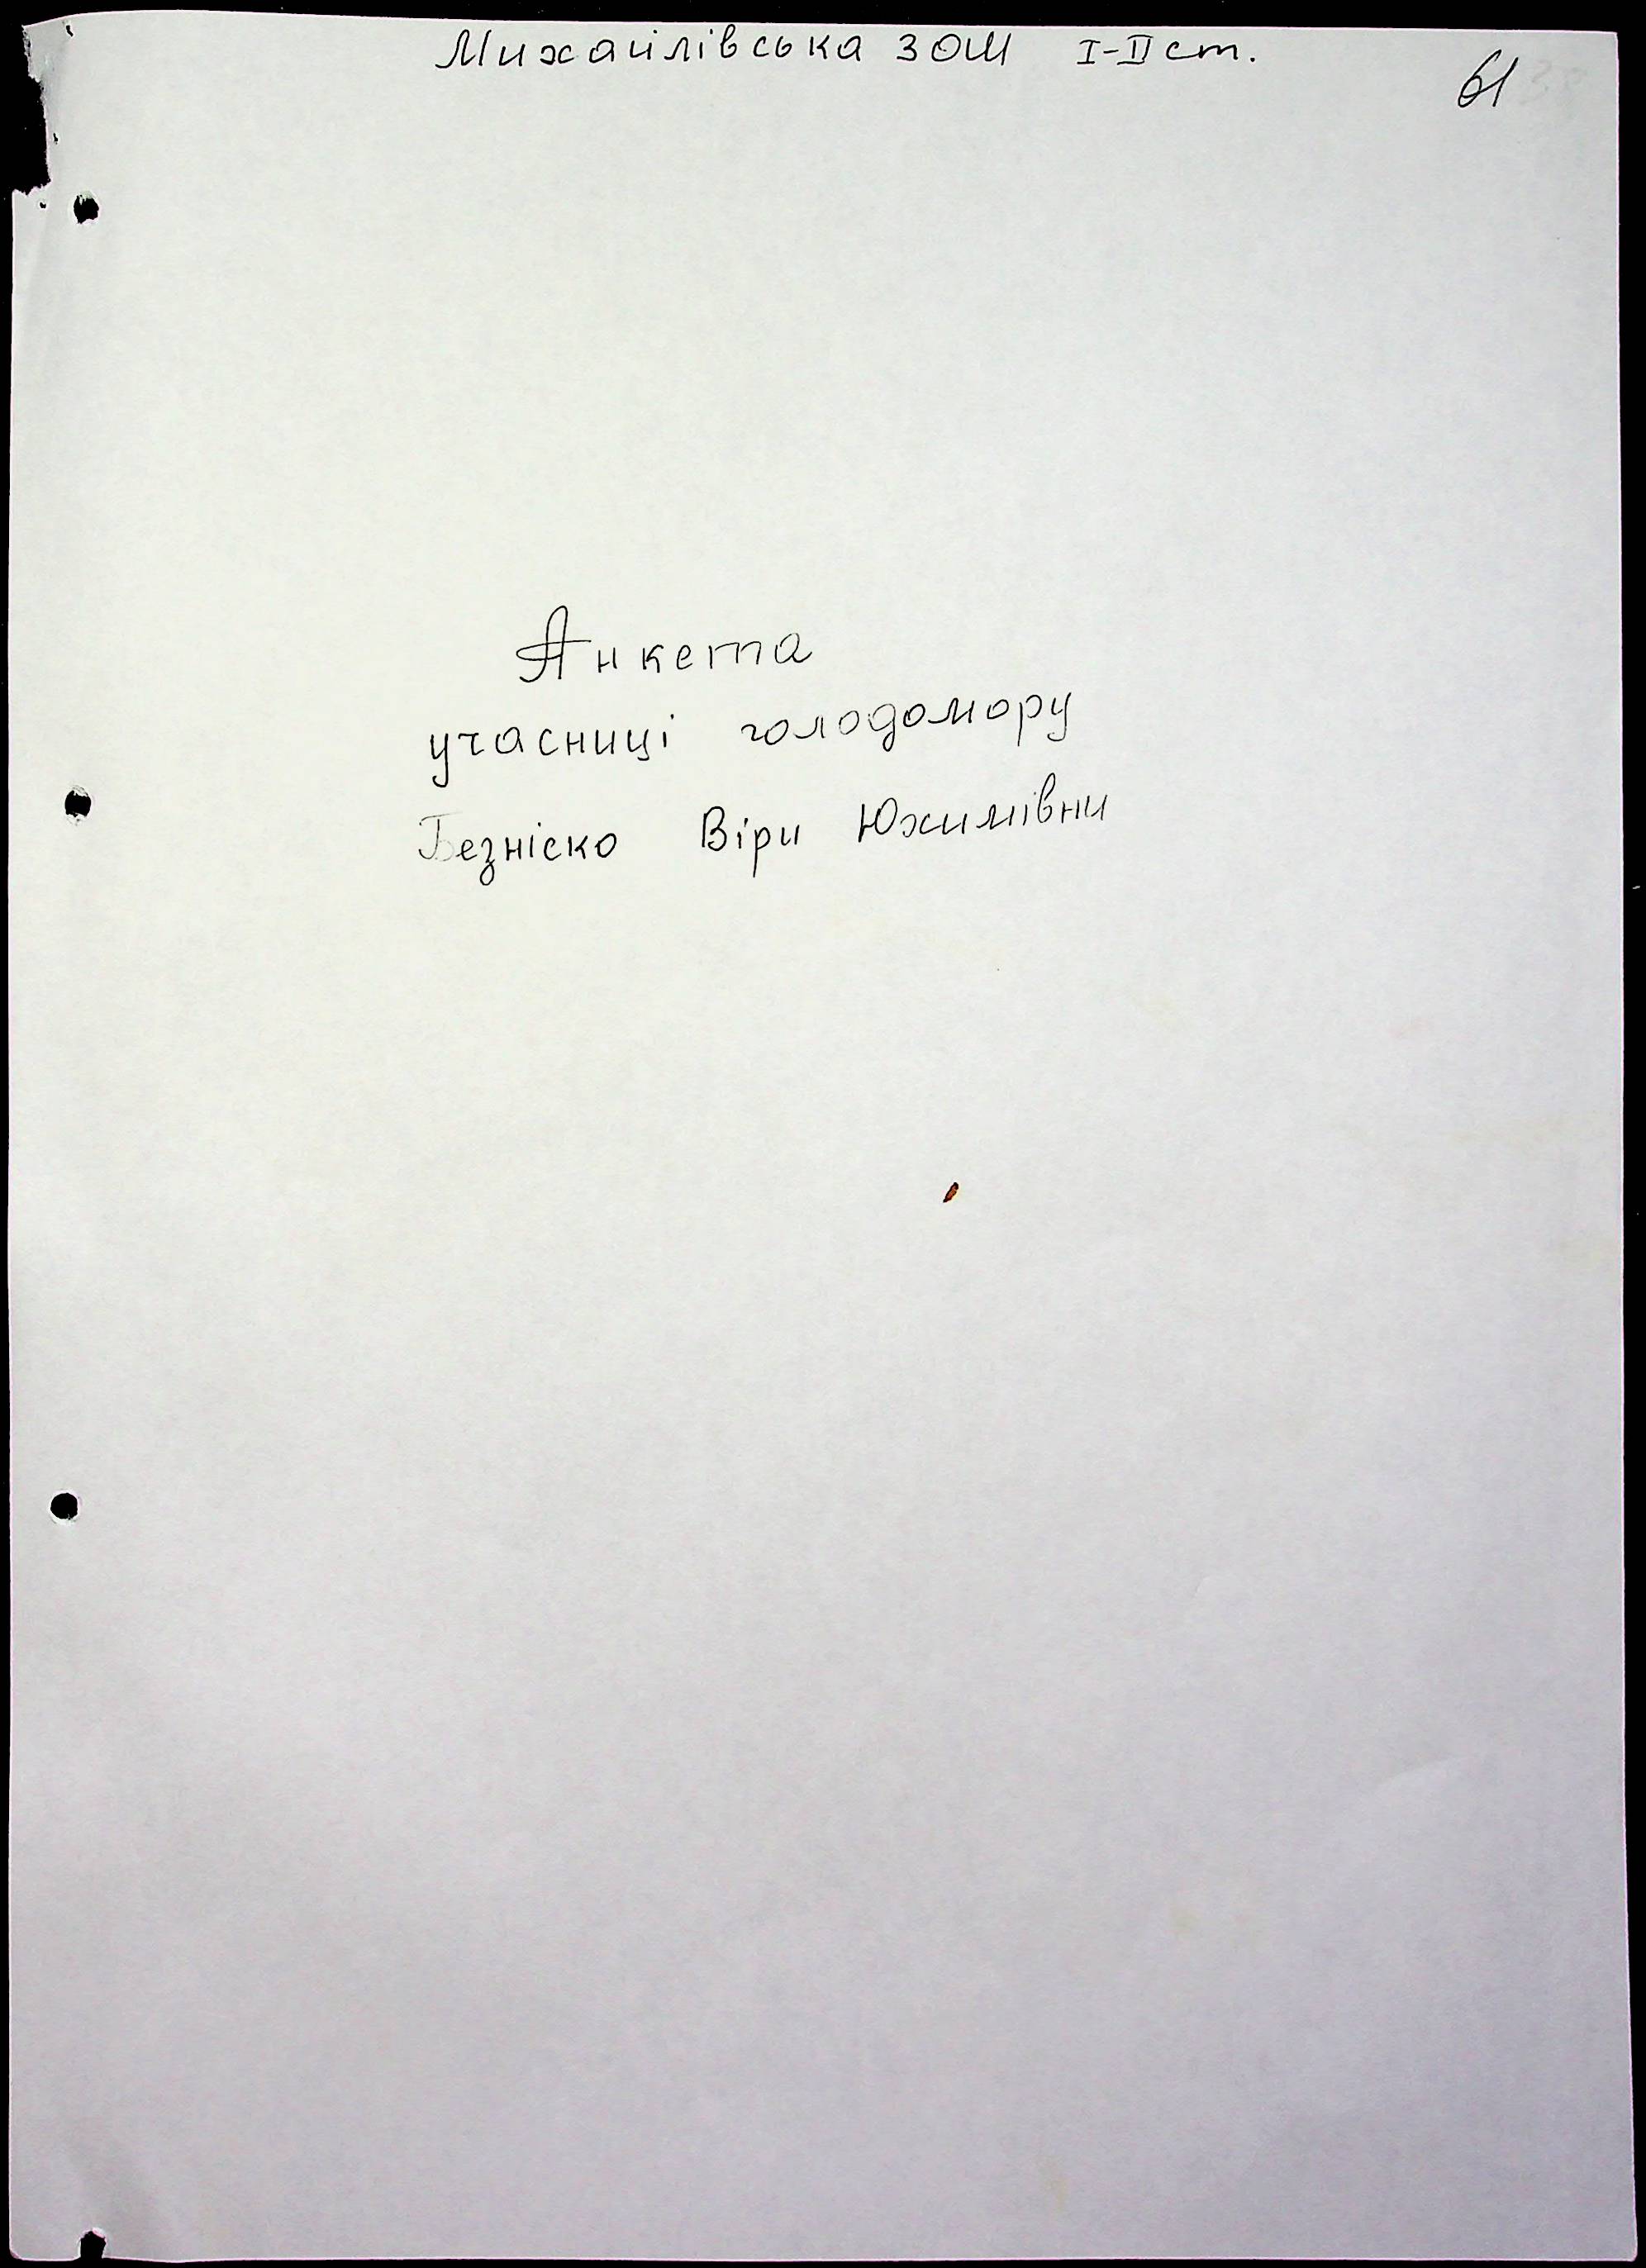 Михайлівська ЗОШ I-II ст.
61
Анкета
учасниці голодомору
Безніско Віри Юхимівни